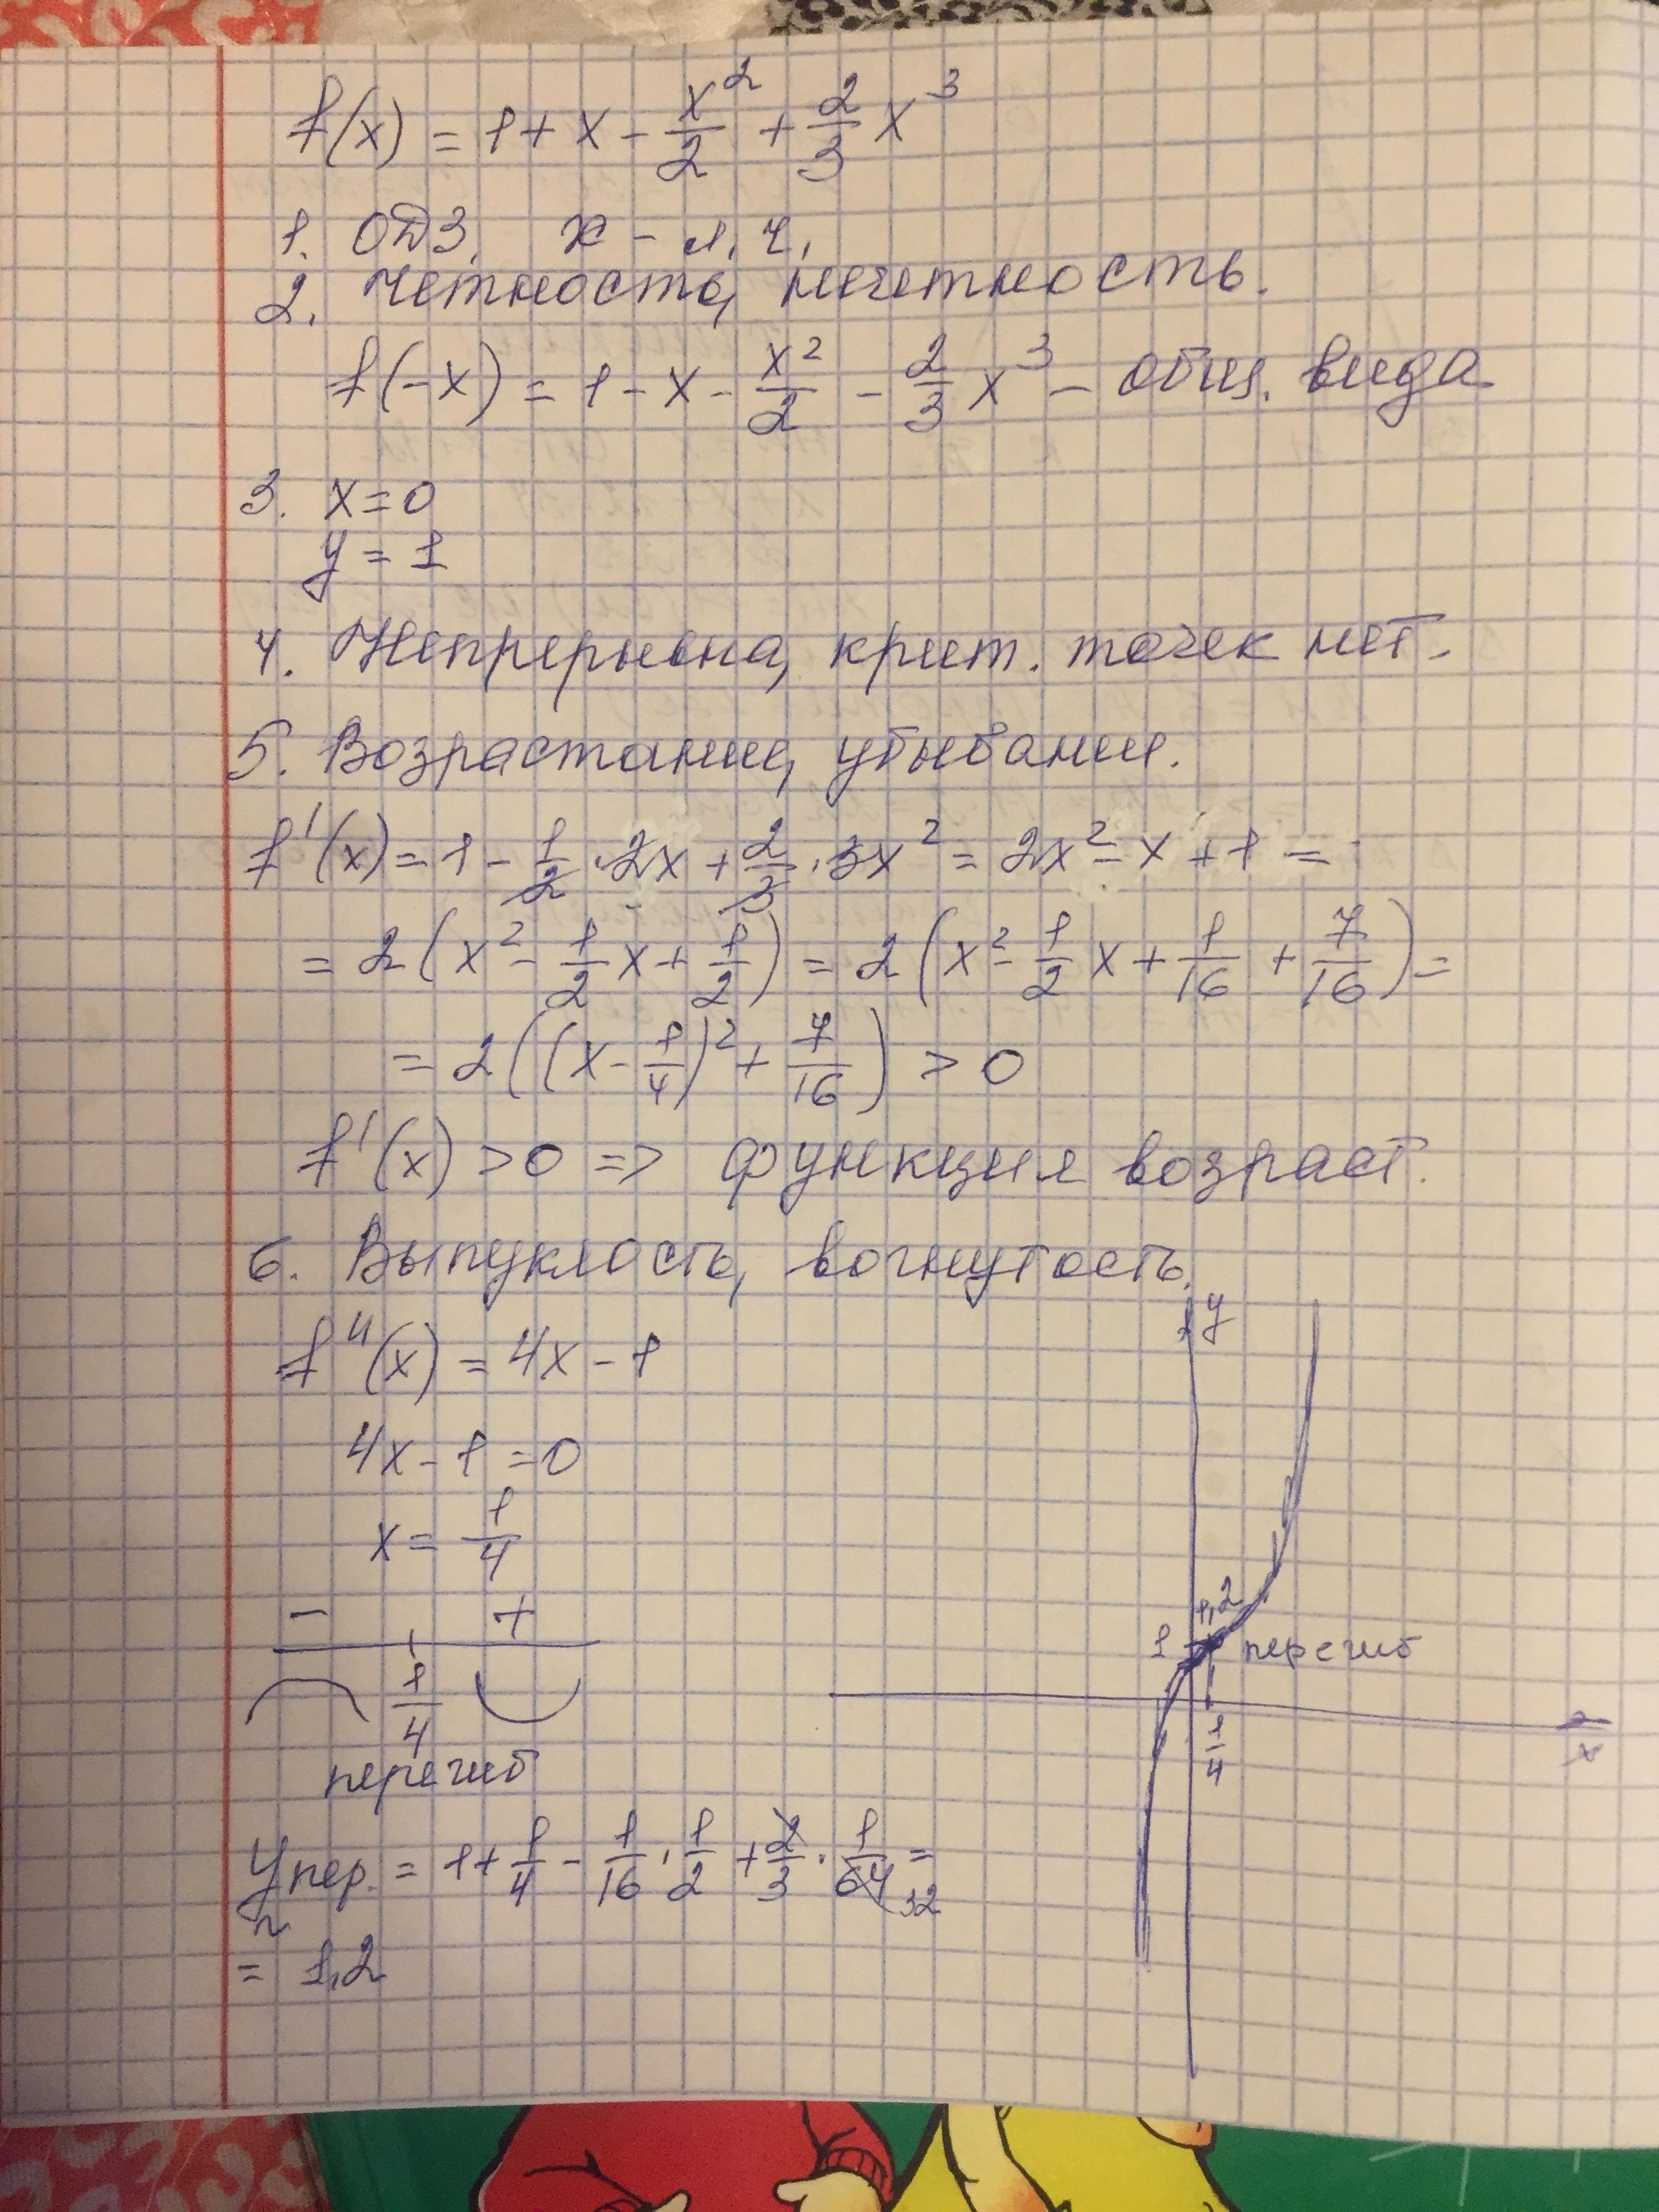 f(x) = 1 + x - x²/2 + 2/3 x³
1. ОДЗ. x - л. ч.
2. Четность, нечетность.
f(-x) = 1 - x - x²/2 - 2/3 x³ - общ. вида
3. x = 0
y = 1
4. Непрерывна, крит. точек нет.
5. Возрастание, убывание.
f'(x) = 1 - 1/2 · 2x + 2/3 · 3x² = 2x² - x + 1 =
= 2(x² - 1/2 x + 1/2) = 2(x² - 1/2 x + 1/16 + 7/16) =
= 2((x - 1/4)² + 7/16) > 0
f'(x) > 0 => функция возраст.
6. Выпуклость, вогнутость.
f''(x) = 4x - 1
4x - 1 = 0
x = 1/4
- +
1/4
перегиб
yпер. = 1 + 1/4 - 1/16 · 1/2 + 2/3 · 1/64 32 =
≈ 1,2
y
1,2
1 перегиб
1/4
x